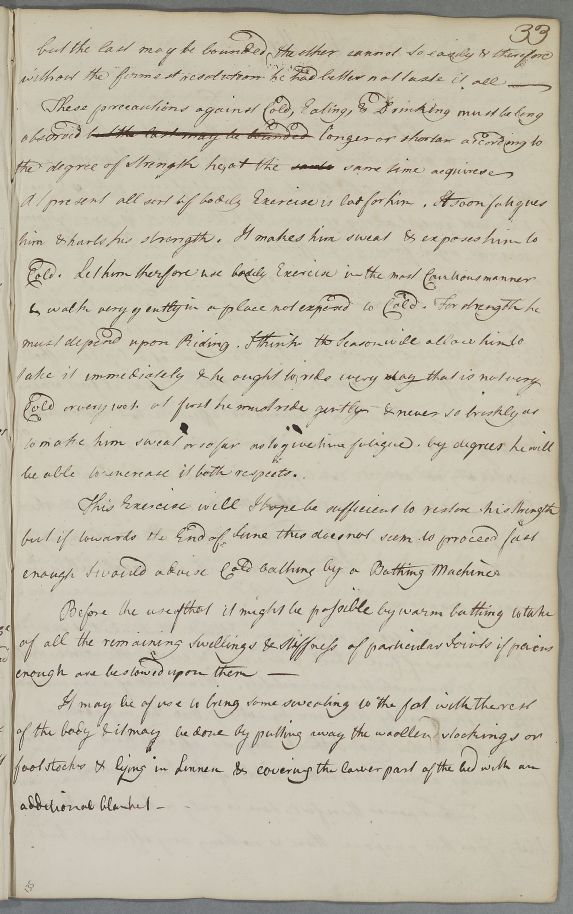 33
but the last may be bounded, the other cannot so easily & therefore
without the firmest resolution he had better not taste it, all —
These precautions against Cold, Eating, & Drinking must be long
observed but the last may be bounded longer or shorter according to
the degree of strength he at the same same time acquires
At present all sort of bodily Exercise is bad for him. It soon fatigues
him & hurts his strength. It makes him sweat & exposes him to
Cold. Let him therefore use bodily Exercise in the most Cautious manner
& walk very gently in a place not exposed to Cold. For strength he
must depend upon Riding. I think the Season will allow him to
take it immediately & he ought to ride every day that is not very
Cold or very wet. at first he must ride gently & never so briskly as
to make him sweat or so far as to give him fatigue. by degrees he will
be able to increase it both respects.
This Exercise will I hope be sufficient to restore his strength
but if towards the End of June this does not seem to proceed fast
enough I would advise Cold bathing by a Bathing Machine
Before the use of that it might be possible by warm bathing to take
of all the remaining Swellings & stiffness of particular Joints if pains
enough are bestowed upon them —
It may be of use to bring some sweating to the feet with the rest
of the body & it may be done by putting away the woollen stockings or
foot socks & lying in Linnen & covering the lower part of the bed with an
additional blanket —